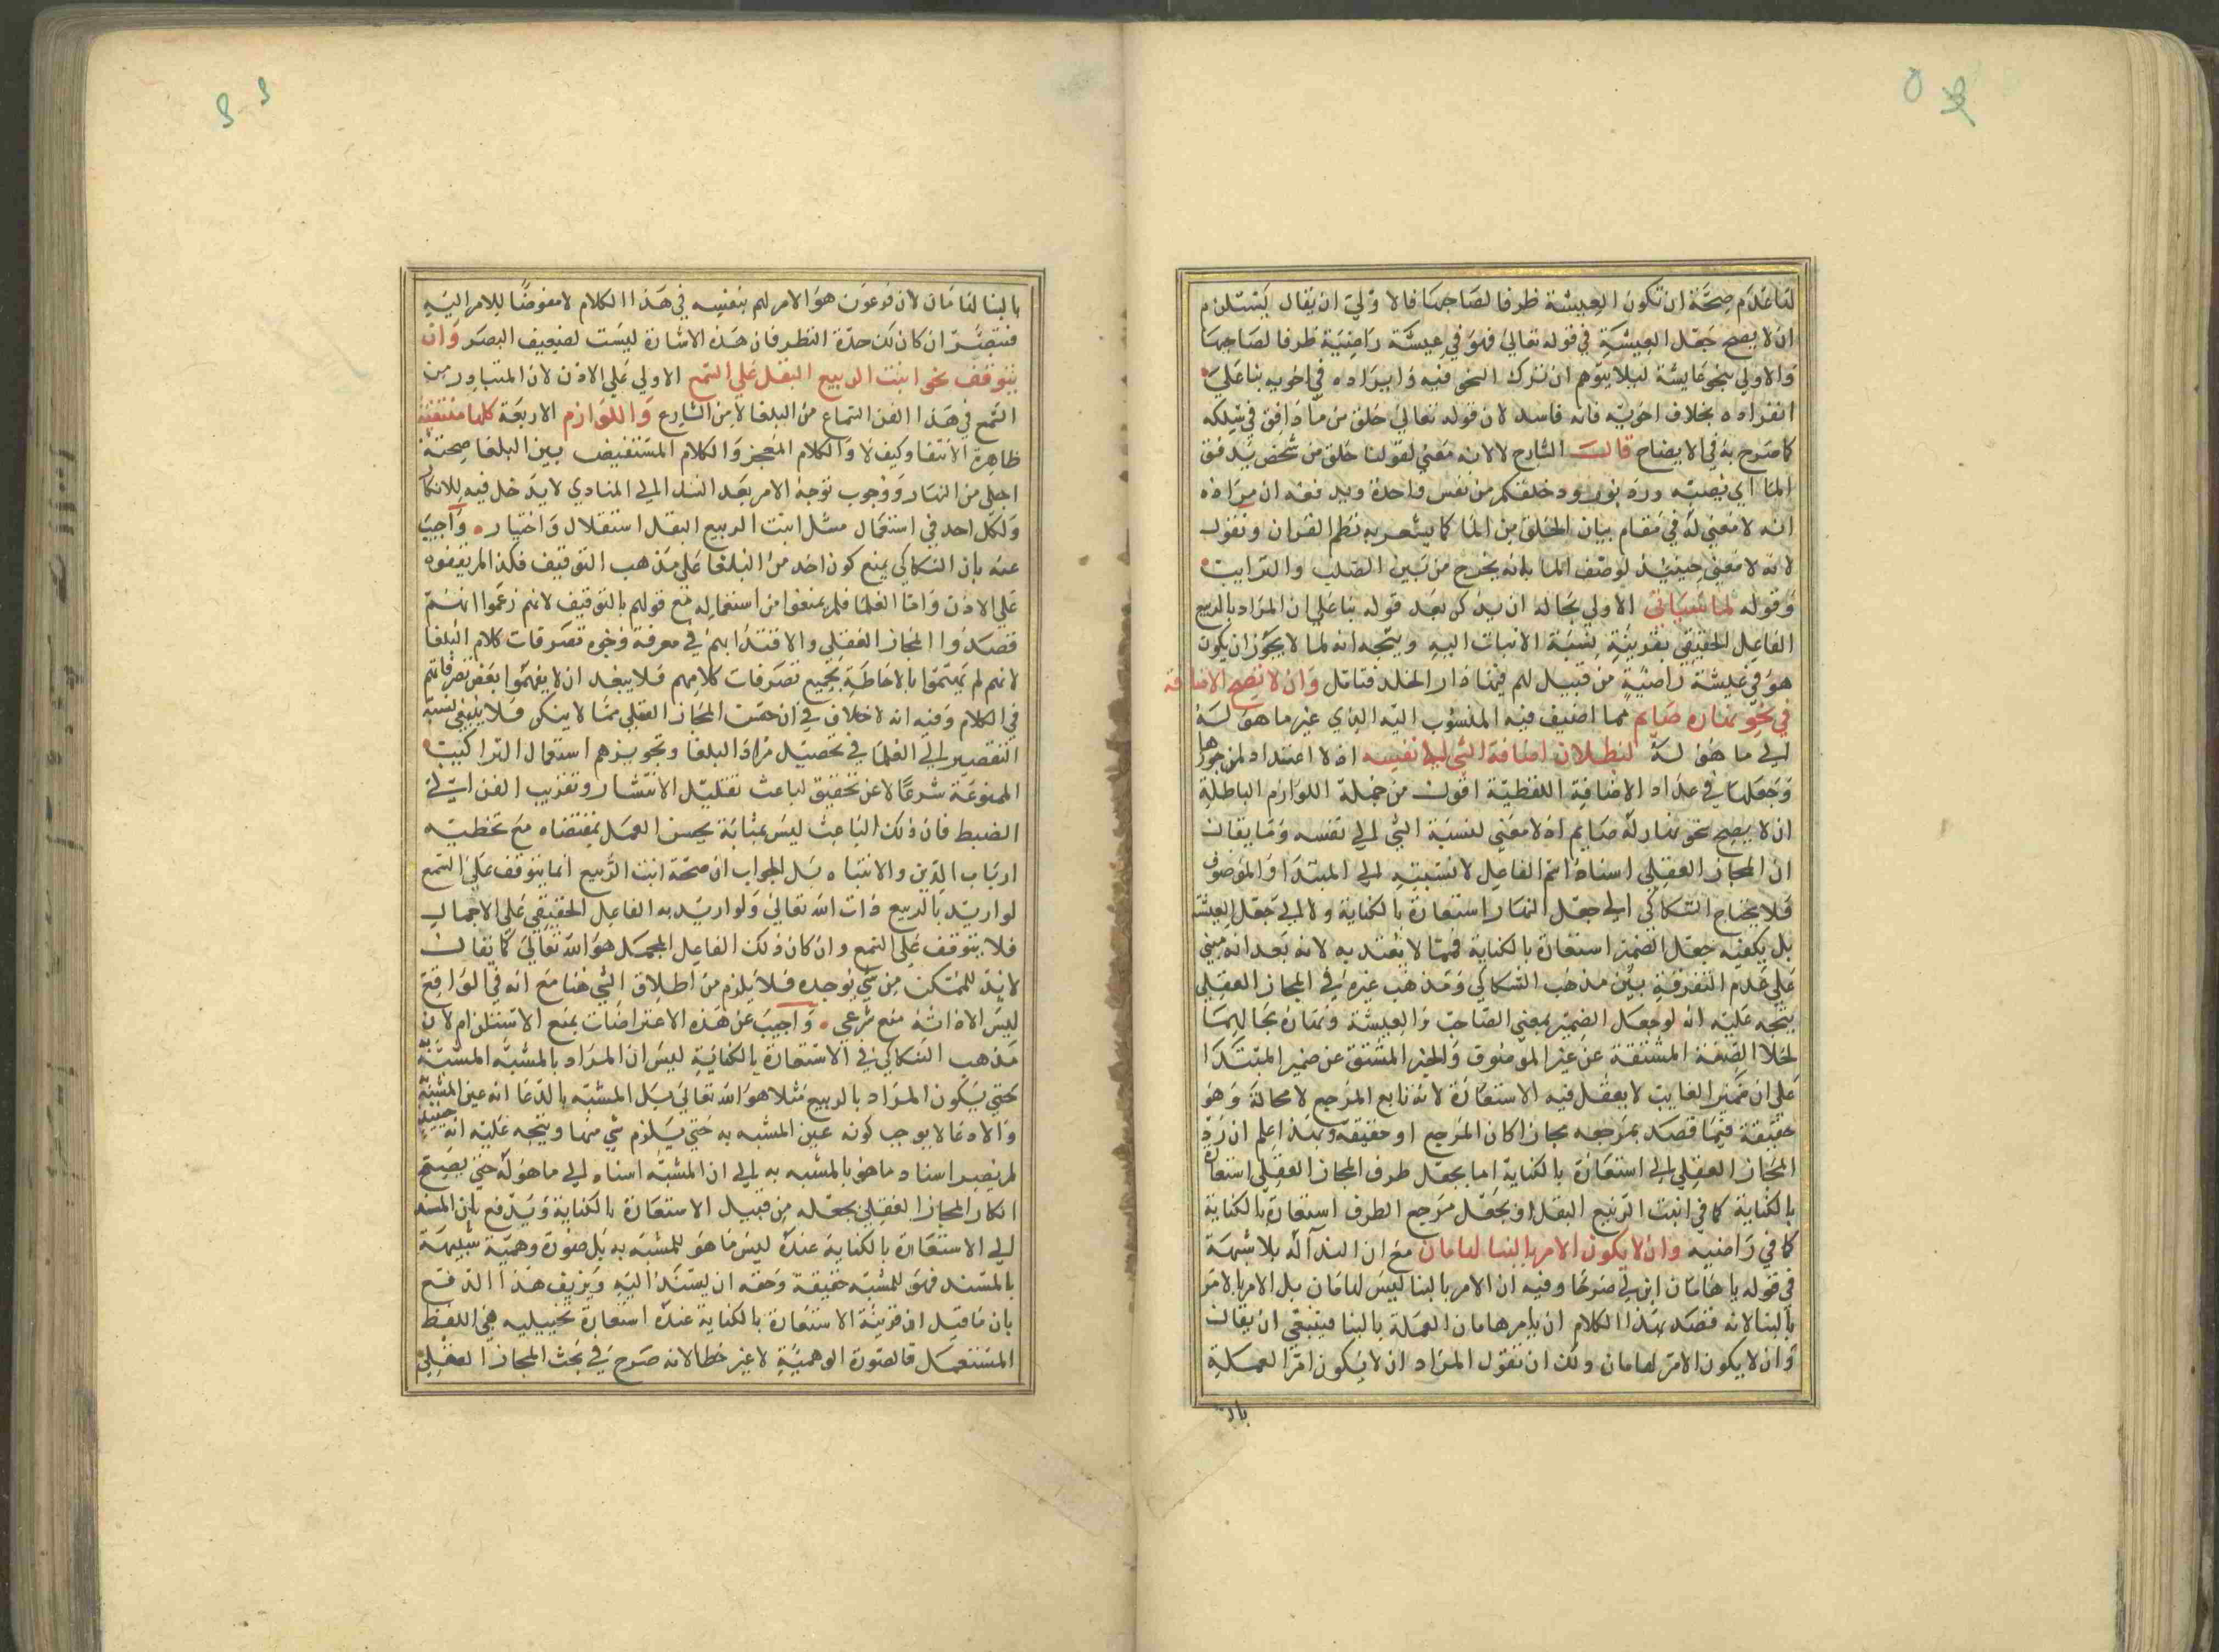 لقا عدم صحة ان تكون العيشة ظرفا لصاحبها فالاولي ان يقال يستلزم
ان لا يصح جعل العيشة في قوله تعالي فهو في عيشة راضية ظرفا لصاحبها
والاولي بنحو عايشة ليلا يتوهم ان ترك النحو فيه وايراده في اخويه بنا علي
انفراده بخلاف اخويه فانه فاسد لان قوله تعالي خلق من ما دافق في سلكه
كما صرح به في الايضاح قالت الشارح لا لانه معني لقولنا خلق من شخص يدفق
الما اي يصبه ورد بورود خلقكم من نفس واحدة ويدفعه ان مراده
انه لا معني له في مقام بيان الخلق من الما كما يشعر به نظم القران ونقول
لانه لا معني حينيذ لوصف الما بانه يخرج من بين الصلب والترايب
وقوله لما سياتي الاولي بحاله ان يذكر بعد قوله بنا علي ان المراد بالربيع
الفاعل الحقيقي بقرينة نسبة الانبات اليه ويتجه انه لما لا يجوز ان يكون
هو في عيشة راضية من قبيل لهم فيها دار الخلد فتامل وان لا تصح الاضافة
في نحو نهاره صايم مما اضيف فيه المنسوب اليه الذي غير ما هو له
الي ما هو له لبطلان اضافة الشي الي نفسه اذ لا اعتداد لمن جوزها
وجعلها في عداد الاضافة اللفظية اقول من جملة اللوازم الباطلة
ان لا يصح نحو نهار له صايم اذ لا معني لنسبة الشي الي نفسه وما يقال
ان المجاز العقلي اسناد اسم الفاعل لا نسبته الي المبتدا والموصوف
فلا يحتاج السكاكي الي جعل النهار استعارة بالكناية ولا الي جعل العيشة
بل يكفيه جعل الضمير استعارة بالكناية فمما لا يعتد به لانه بعد انه مبني
علي عدم التفرقة بين مذهب السكاكي ومذهب غيره في المجاز العقلي
يتجه عليه انه لو جعل الضمير بمعني الصاحب والعيشة ونهاره بحاليهما
لخلا الصفة المشتقة عن غير الموصوف والخبر المشتق عن ضمير المبتدا
علي ان ضمير الغايب لا يعقل فيه الاستعارة لانه تابع المرجع لا محالة وهو
حقيقة فيما قصد بمرجعه مجازا كان المرجع او حقيقة وبهذا اعلم ان رد
المجاز العقلي الي استعارة بالكناية اما بجعل طرف المجاز العقلي استعارة
بالكناية كما في انبت الربيع البقل او بجعل مرجع الطرف استعارة بالكناية
كما في راضيه وان لا يكون الامر بالبنا لهامان مع ان الندا له بلا شبهة
في قوله يا هامان ابن لي صرحا وفيه ان الامر بالبنا ليس لهامان بل الامر بالامر
بالبنا لانه قصد بهذا الكلام ان يامر هامان العملة بالبنا فينبغي ان يقال
وان لا يكون الامر لهامان ولك ان تقول المراد ان لا يكون امر العملة
بالبنا
بالبنا لهامان لان فرعون هو الامر لهم بنفسه في هذا الكلام لا مفوضا للامر اليه
فتبصر ان كان لك حدة النظر فان هذه الاشارة ليست لضعيف البصر وان
يتوقف نحو انبت الربيع البقل علي السمع الاولي علي الاذن لان المتبادر من
السمع في هذا الفن السماع من البلغا لا من الشارع واللوازم الاربعة كلها منتفية
ظاهرة الانتفا وكيف لا والكلام المعجز والكلام المستفيض بين البلغا صحته
اجلي من النهار ووجوب توجه الامر بعد الندا الي المنادي لا يدخل فيه للانكار
ولكل احد في استعمال مثل انبت الربيع البقل استقلال واختيار واجيب
عنه بان السكاكي يمنع كون احد من البلغا علي مذهب التوقيف فلذا لم يقفوه
علي الاذن واما العلما فلم يمنعوا من استعماله مع قولهم بالتوقيف لانهم زعموا انهم
قصدوا المجاز العقلي والاقتدا بهم في معرفة وجوه تصرفات كلام البلغا
لانهم لم يهتموا بالاحاطة بجميع تصرفات كلامهم فلا يبعد ان لا يفهموا بعض تصرفاتهم
في الكلام وفيه انه لا خلاف في ان حسن المجاز العقلي مما لا ينكر فلا ينبغي نسبة
التقصير الي العلما في تحصيل مراد البلغا وتجويزهم استعمال التراكيب
الممنوعة شرعا لا عن تحقيق لباعث تقليل الانتشار وتقريب الفن الي
الضبط فان ذلك الباعث ليس بمثابة يحسن العمل بمقتضاه مع تخطيه
ارباب الدين والانتباه بل الجواب ان صحة انبت الربيع انما يتوقف علي السمع
لو اريد بالربيع ذات الله تعالي ولو اريد به الفاعل الحقيقي علي الاجمال
فلا يتوقف علي السمع وان كان ذلك الفاعل المجمل هو الله تعالي كما يقال
لا بد للممكن من شي يوجده فلا يلزم من اطلاق الشي هنا مع انه في الواقع
ليس الا ذاته منع شرعي واجيب عن هذه الاعتراضات بمنع الاستلزام لان
مذهب السكاكي في الاستعارة بالكناية ليس ان المراد بالمشبه المشبه به
حتي يكون المراد بالربيع مثلا هو الله تعالي بل المشبه بالدعا انه عين المشبه به
والادعا لا يوجب كونه عين المشبه به حتي يلزم شي منها ويتجه عليه انه حينيذ
لم يصر اسناد ما هو بالمشبه به الي ان المشبه اسناد الي ما هو له حتي يصح
انكار المجاز العقلي بجعله من قبيل الاستعارة بالكناية ويدفع بان المسند
الي الاستعارة بالكناية عنده ليس ما هو للمشبه به بل صورة وهمية شبيهة
بالمسند فهو للمشبه حقيقة وحقه ان يسند اليه ويزيف هذا الدفع
بان ما قيل ان قرينة الاستعارة بالكناية عنده استعارة تخييلية هي اللفظ
المستعمل فالصورة الوهمية لا غير خطا لانه صرح في بحث المجاز العقلي